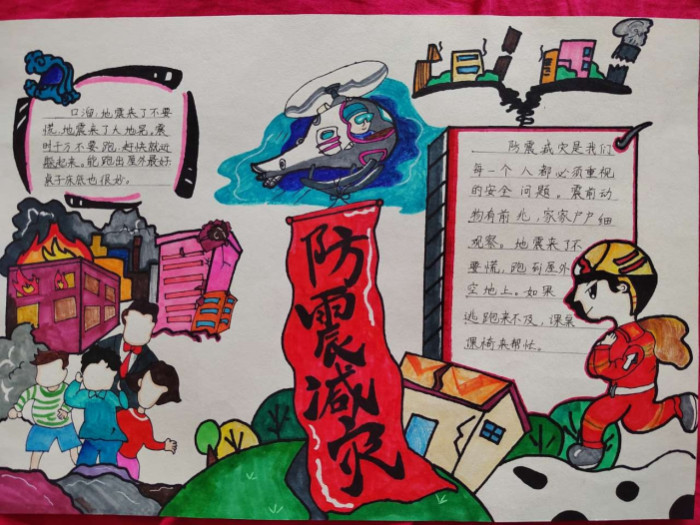 口溜,地震来了不要
慌,地震来了大地晃。震
时千万不要跑,赶快就近
躲起来。能跑出屋外最好
桌子床底也很妙。
防震减灾
防震减灾是我们
每一个人都必须重视
的安全问题。震前动
物有前兆,家家户户细
观察。地震来了不
要慌,跑到屋外
空地上。如果
逃跑来不及,课桌
课椅来帮忙。